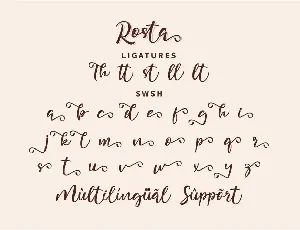 Rosta
LIGATURES
Th tt st ll lt
SWSH
a b c d e f g h i
j k l m n o p q r
s t u v w x y z
Multilingüäl Süppört